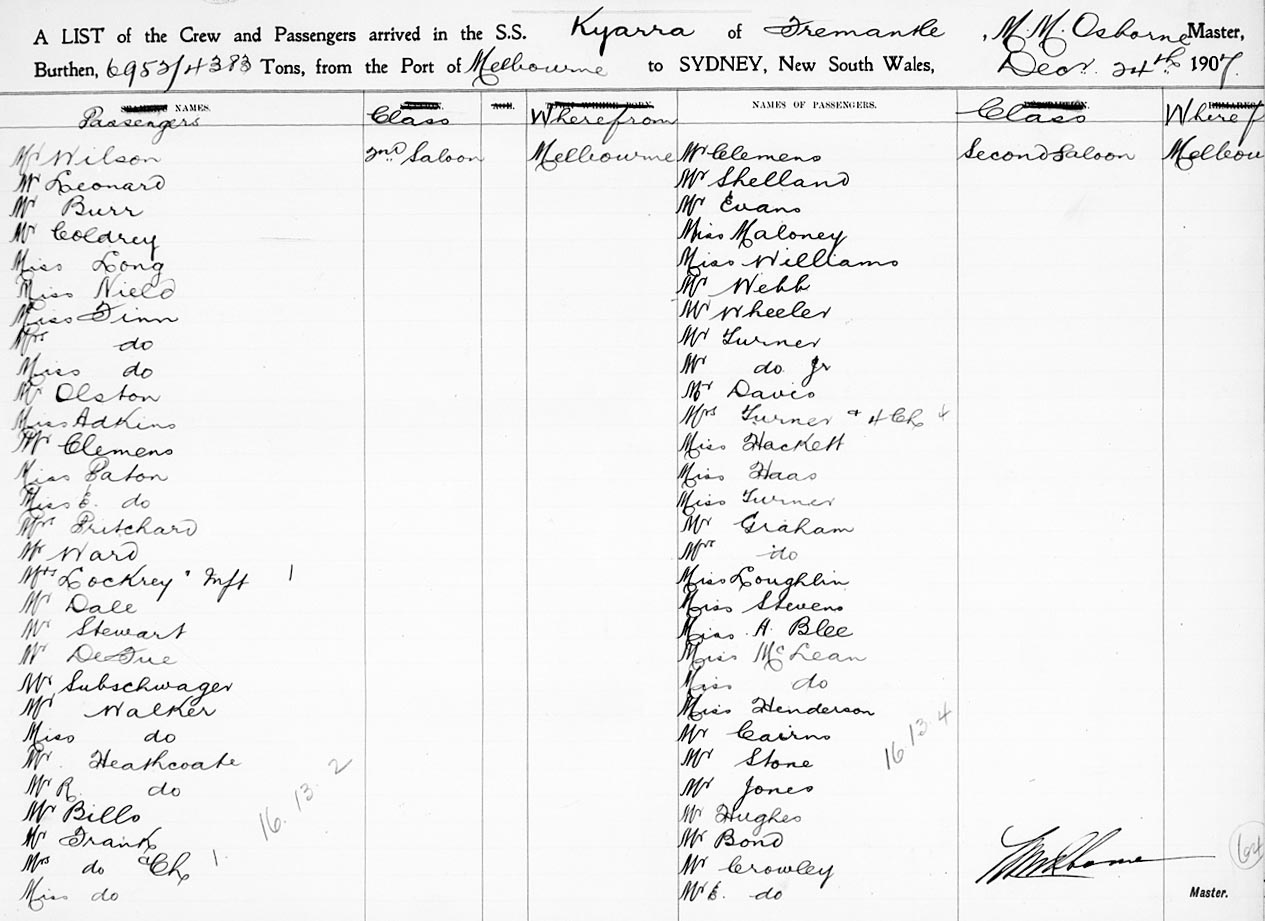 A LIST of the Crew and Passengers arrived in the S.S. Kyarra of Fremantle, M. M. Osborne Master,
Burthen, 6953/4383 Tons, from the Port of Melbourne to SYDNEY, New South Wales, Decr. 24th 1907.
NAMES.
Passengers
Class
Wherefrom
NAMES OF PASSENGERS.
Class
Where f
Mr Wilson 2nd Saloon Melbourne
Mr Leonard
Mr Burr
Mr Coldrey
Miss Long
Miss Nield
Miss Finn
Mrs do
Miss do
Mr Olston
Miss Adkins
Mr Clemens
Miss Paton
Miss E. do
Mrs Pritchard
Mr Ward
Mrs Lockrey + Inft 1
Mr Dale
Mr Stewart
Mr DeFue
Mr Subschwager
Mr Walker
Miss do
Mr. Heathcoate
Mr R. do
Mr Bills
Mr Frank
Mrs do & Ch 1.
Miss do
16. 13. 2
Mr Clemens Second Saloon Melbou
Mr Shelland
Mr Evans
Miss Maloney
Miss Williams
Mr Webb
Mr Wheeler
Mr Turner
Mr do Jr
Mr Davis
Mrs Turner + 4 Ch 4
Miss Hackett
Miss Haas
Miss Turner
Mr Graham
Mrs do
Miss Loughlin
Miss Stevens
Miss A. Blee
Miss McLean
Miss do
Miss Henderson
Mr Cairns
Mr Stone
Mr Jones
Mr Hughes
Mr Bond
Mr Crowley
Mr E. do
16 13. 4
64
Master.